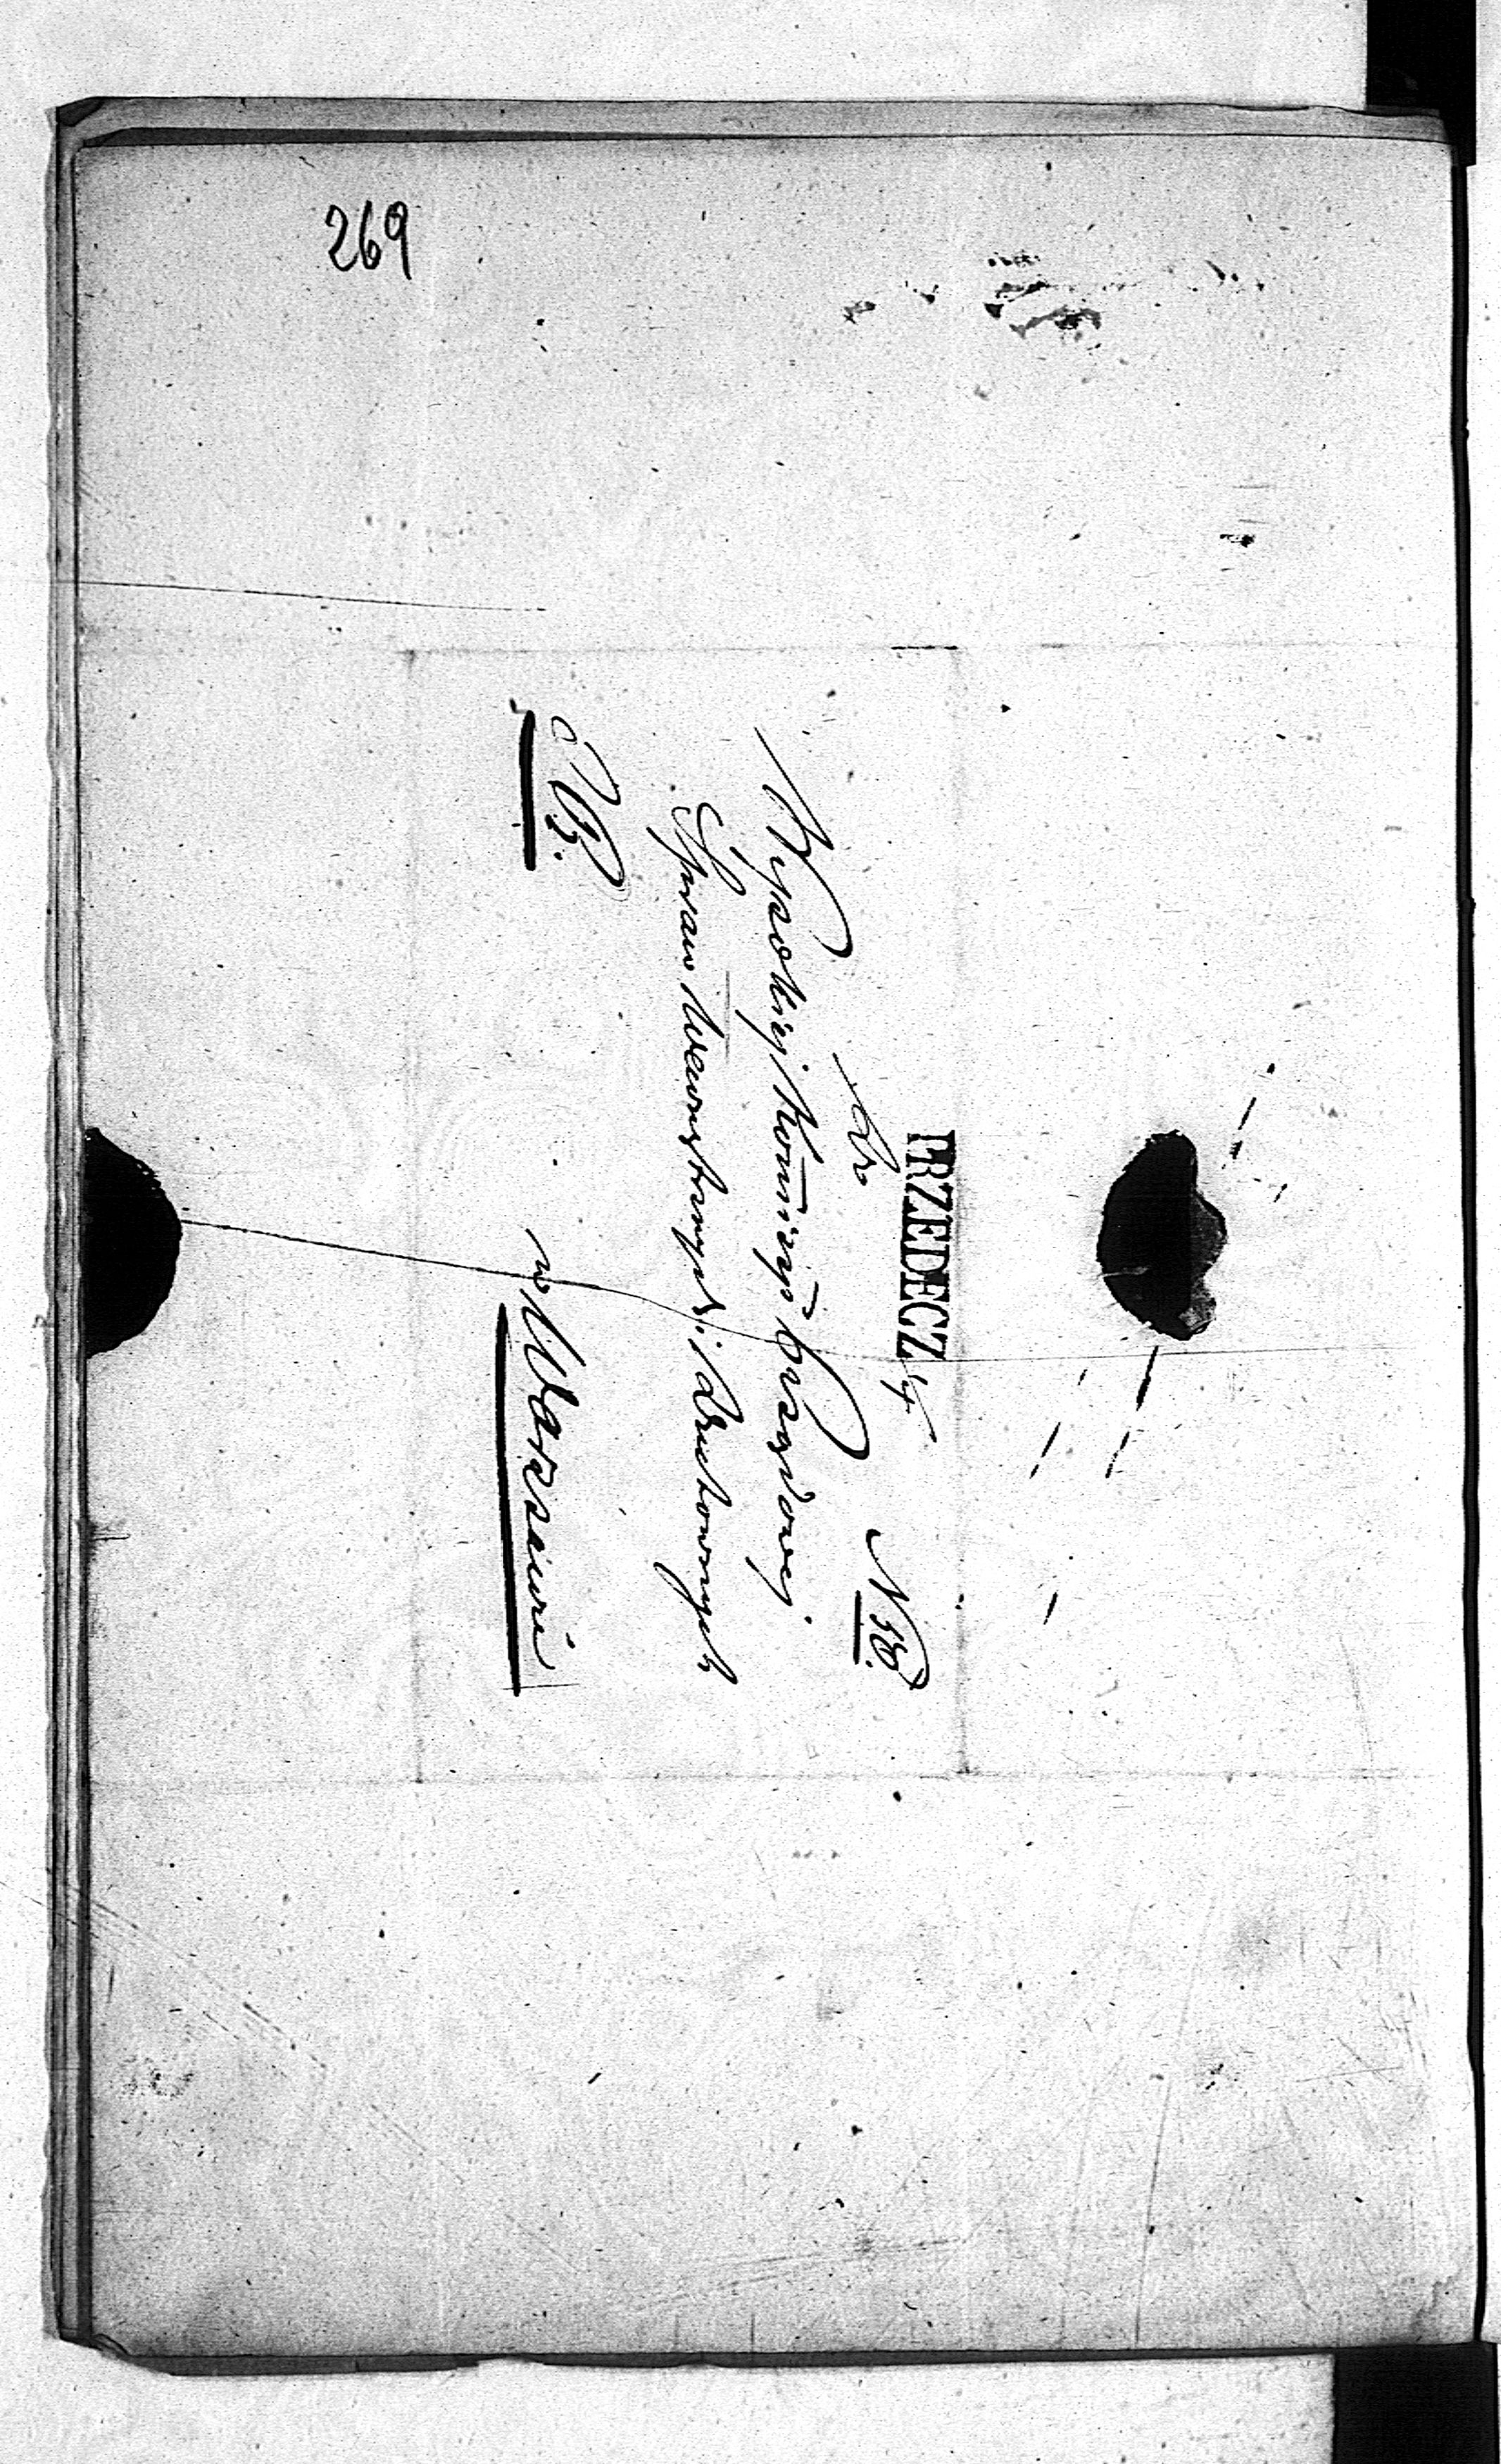 269
PRZEDECZ 4
N 58.
Do
Wysokiey Kom̄issyi Rządowey
Spraw Wewnętrznych i Duchownych
w Warszawie